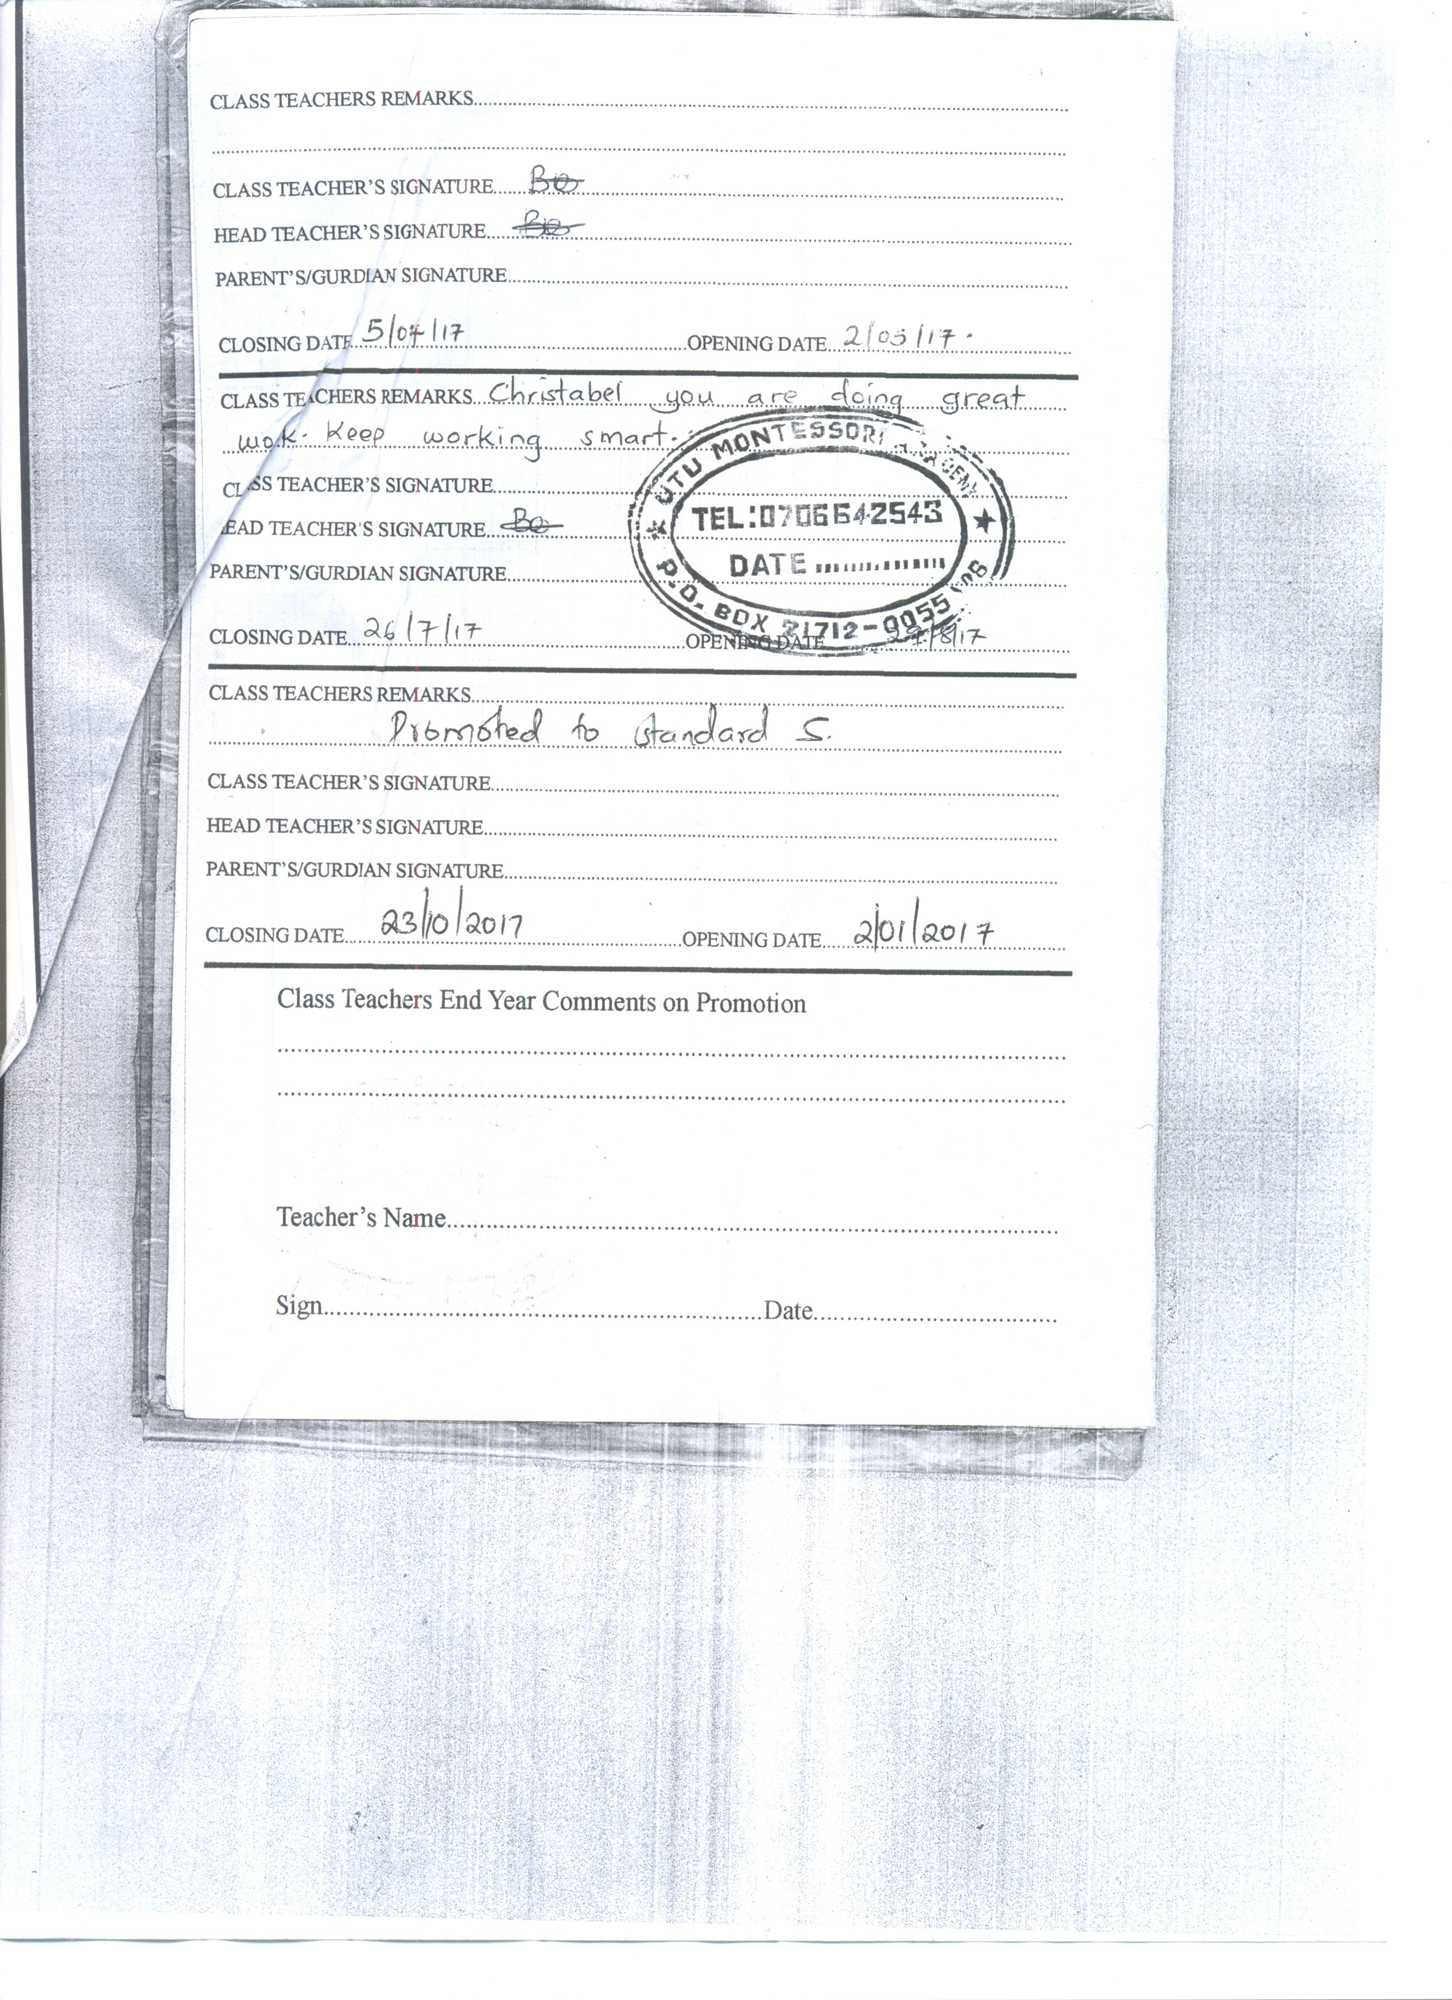 CLASS TEACHERS REMARKS
CLASS TEACHER'S SIGNATURE
HEAD TEACHER'S SIGNATURE
PARENT'S/GURDIAN SIGNATURE
CLOSING DATE 5/04/17 OPENING DATE 2/05/17.
CLASS TEACHERS REMARKS Christabel you are doing great
work. Keep working smart.
CLASS TEACHER'S SIGNATURE
EAD TEACHER'S SIGNATURE
PARENT'S/GURDIAN SIGNATURE
UTU MONTESSORI
TEL:0706642543
DATE
P.O. BOX 21712-00
CLOSING DATE 26/7/17 OPENING DATE /8/17
CLASS TEACHERS REMARKS
Promoted to standard 5.
CLASS TEACHER'S SIGNATURE
HEAD TEACHER'S SIGNATURE
PARENT'S/GURDIAN SIGNATURE
CLOSING DATE 23/10/2017 OPENING DATE 2/01/2017
Class Teachers End Year Comments on Promotion
Teacher's Name
Sign Date